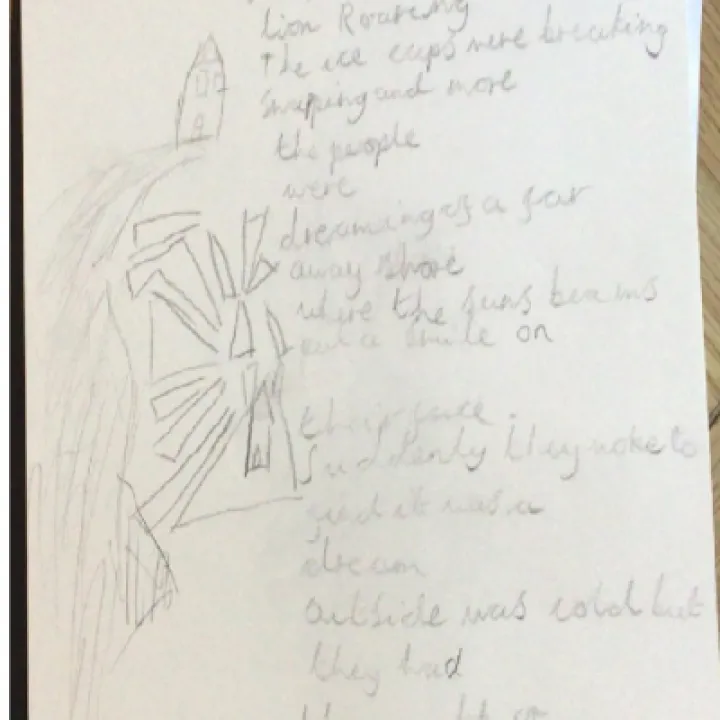 lion Roareng
The ice caps were breaking
snapping and more
the people
were
dreaming of a far
away shore
where the suns beams
put a smile on
their face.
Suddenly they woke to
find it was a
dream
outside was cold but
they had